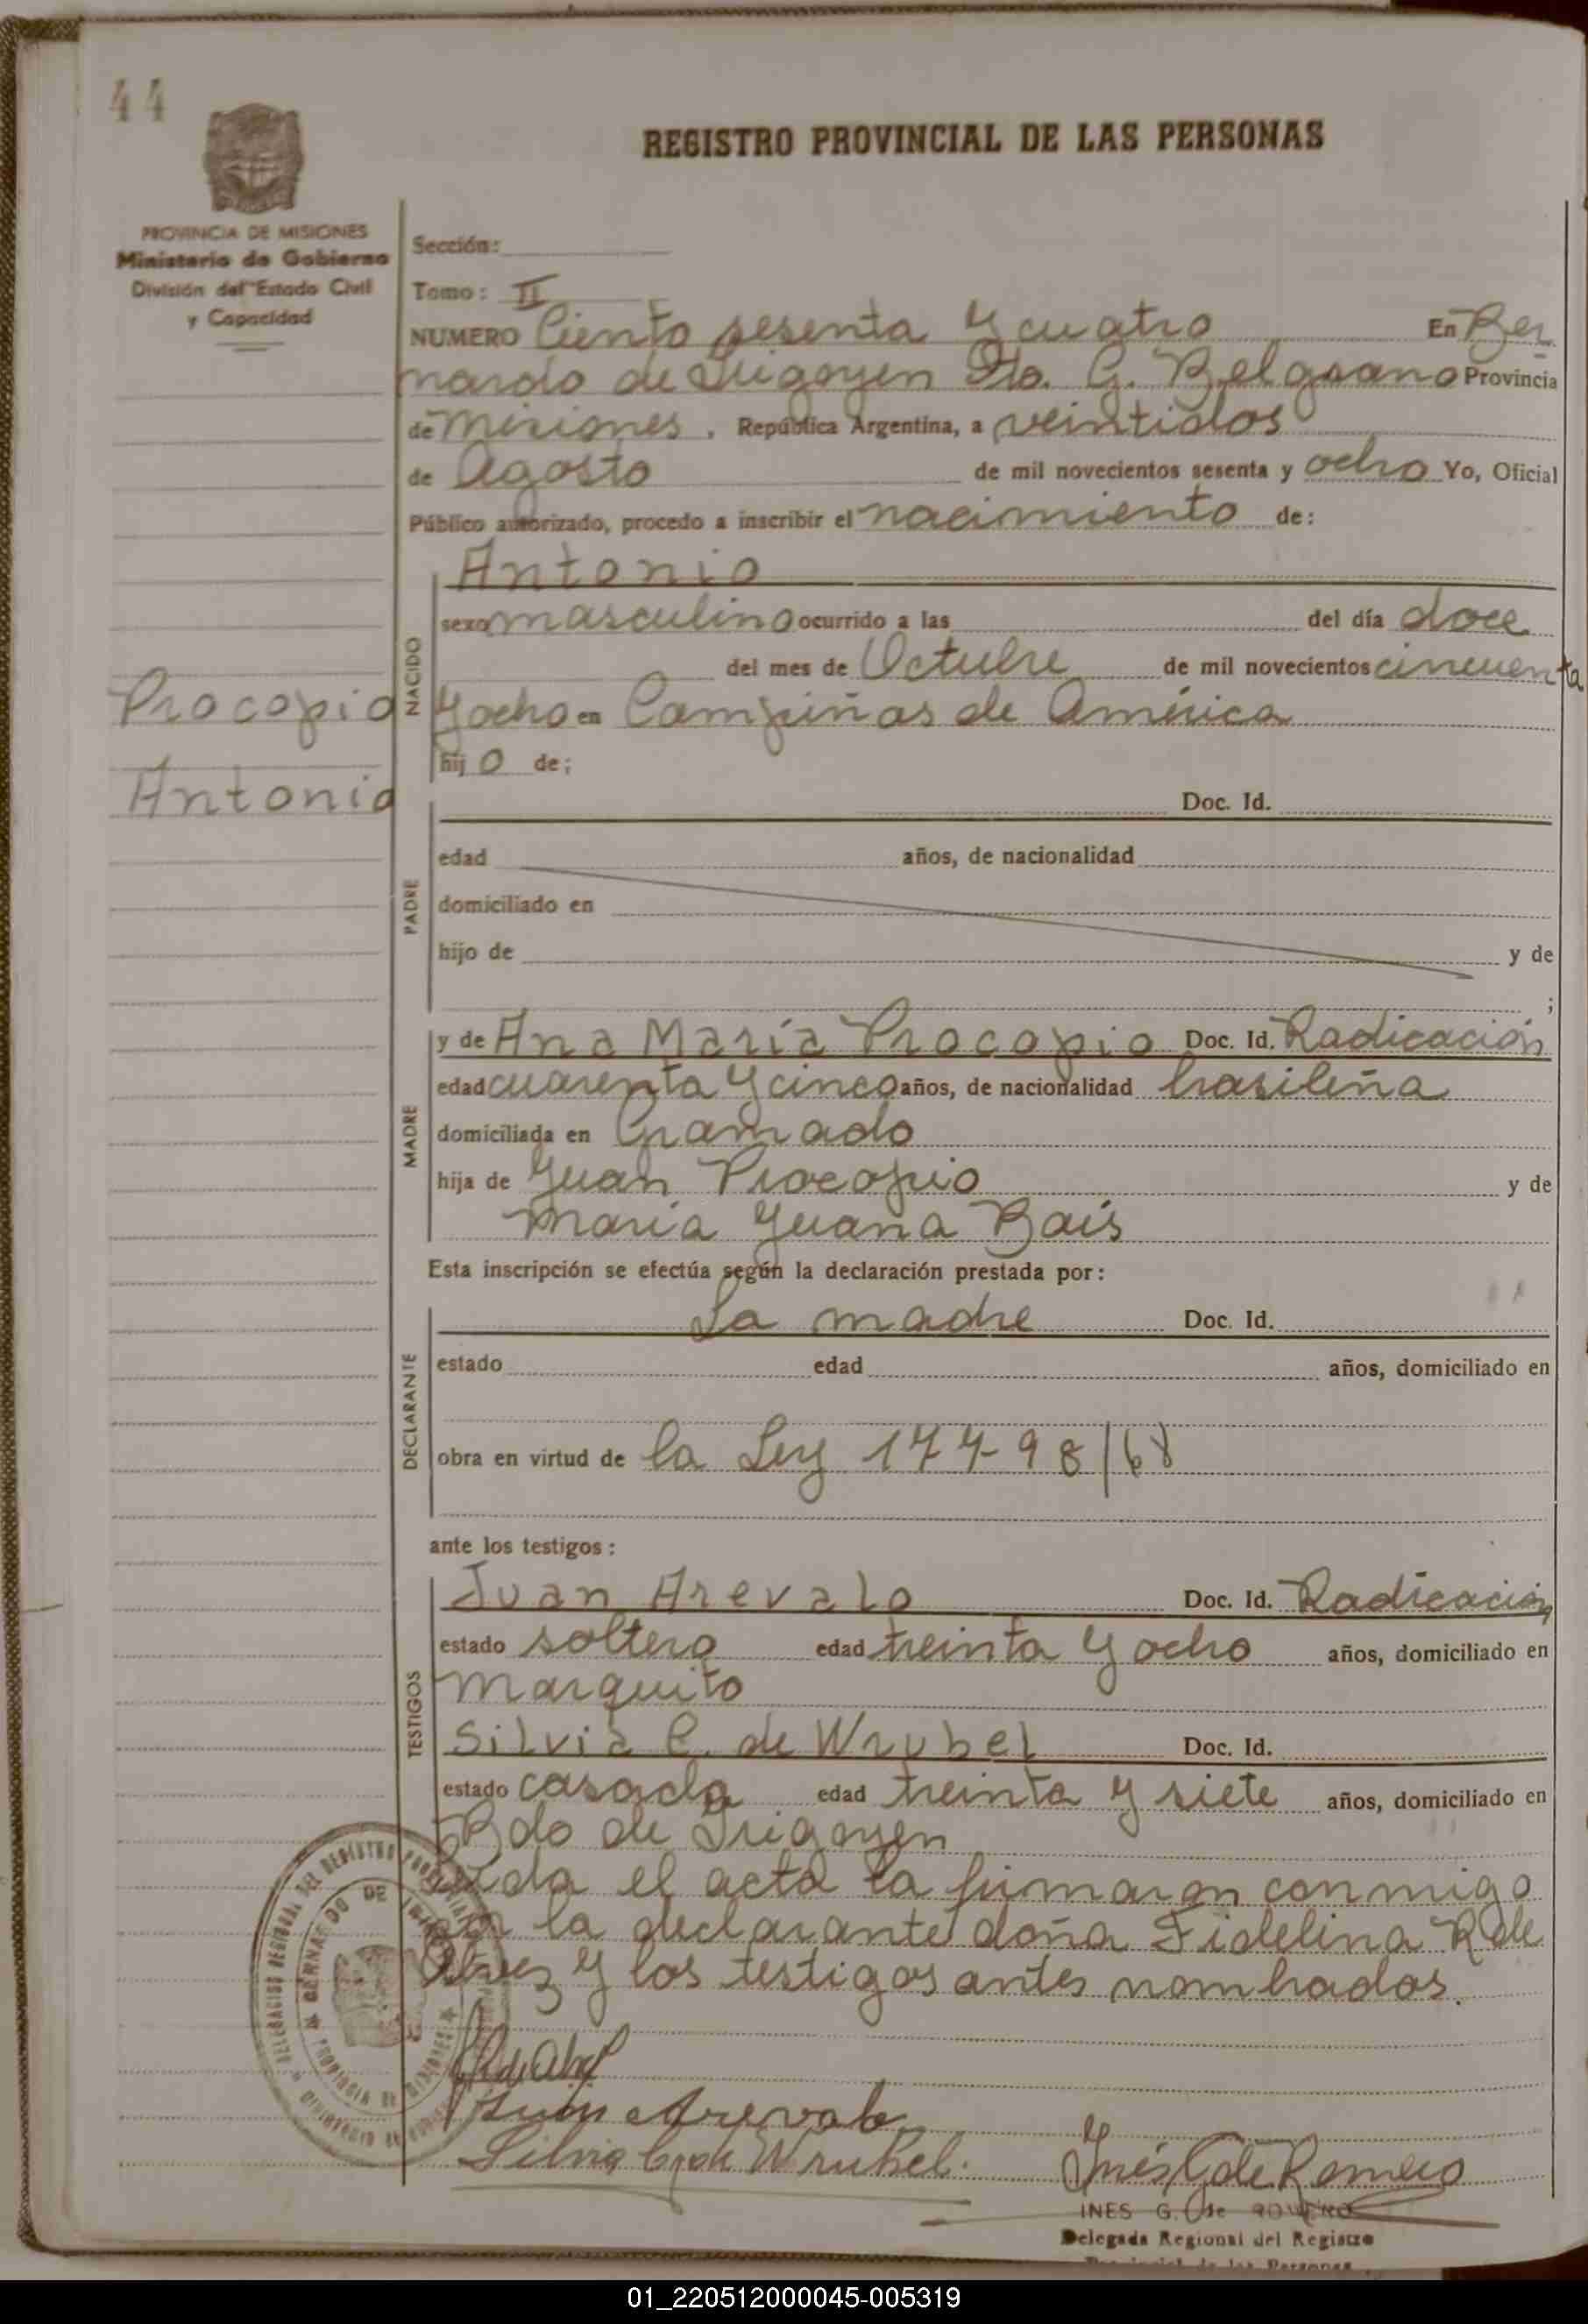 44
REGISTRO PROVINCIAL DE LAS PERSONAS
PROVINCIA DE MISIONES
Ministerio de Gobierno
División del Estado Civil
y Capacidad
Sección:
Tomo: II
NUMERO Ciento sesenta y cuatro En Ber
nardo de Irigoyen Dto. G. Belgrano Provincia
de Misiones. República Argentina, a veintidos
de Agosto de mil novecientos sesenta y ocho Yo, Oficial
Público autorizado, procedo a inscribir el nacimiento de:
Antonio
sexo masculino ocurrido a las del día doce
del mes de Octubre de mil novecientos cincuenta
y ocho en Campiñas de América
hijo de;
NACIDO
Procopio
Antonio
Doc. Id.
edad años, de nacionalidad
domiciliado en
hijo de y de
;
PADRE
y de Ana María Procopio Doc. Id. Radicación
edad cuarenta y cinco años, de nacionalidad brasileña
domiciliada en Gramado
hija de Juan Procopio y de
María Juana Bais
MADRE
Esta inscripción se efectúa según la declaración prestada por:
La madre Doc. Id.
estado edad años, domiciliado en
obra en virtud de la Ley 17798/68
DECLARANTE
ante los testigos:
Juan Arevalo Doc. Id. Radicación
estado soltero edad treinta y ocho años, domiciliado en
Marquito
Silvia C. de Wrubel Doc. Id.
estado casada edad treinta y siete años, domiciliado en
Bdo de Irigoyen
TESTIGOS
el acta la firmaron conmigo
la declarante doña Fidelina R de
y los testigos antes nombrados.
DELEGACION REGIONAL DEL REGISTRO
BERNARDO DE
PROVINCIA DE MISIONES
Juan Arevalo
Silvia C. de Wrubel.
Inés G de Romero
INES G. de ROMERO
Delegada Regional del Registro
Provincial de las Personas
01_220512000045-005319